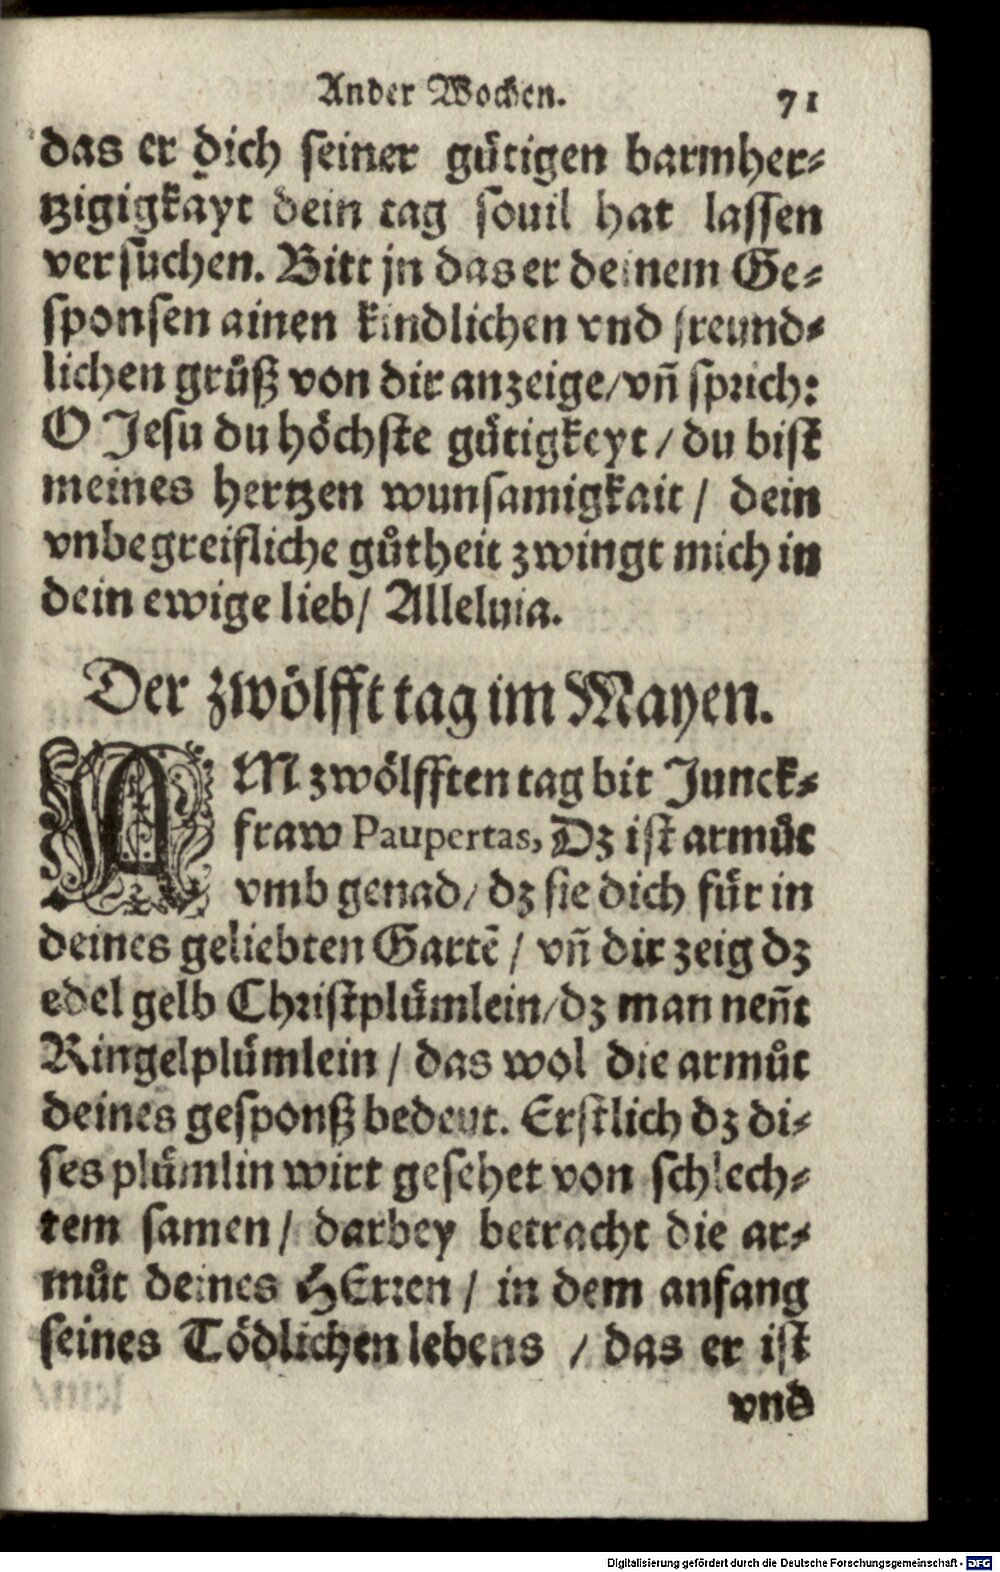 Ander Wochen. 71
das er dich seiner gütigen barmher⸗
tzigigkayt dein tag souil hat lassen
versuchen. Bitt jn das er deinem Ge⸗
sponsen ainen kindlichen vnd freund⸗
lichen grůß von dir anzeige/vñ sprich:
O Jesu du höchste gütigkeyt / du bist
meines hertzen wunsamigkait / dein
vnbegreifliche gůtheit zwingt mich in
dein ewige lieb/ Alleluia.
Der zwölfft tag im Mayen.
AM zwölfften tag bit Junck⸗
fraw Paupertas, Dz ist armůt
vmb genad/ dz sie dich für in
deines geliebten Gartē / vñ dir zeig dz
edel gelb Christplümlein/dz man neñt
Ringelplümlein / das wol die armůt
deines gesponß bedeut. Erstlich dz di⸗
ses plümlin wirt gesehet von schlech⸗
tem samen / darbey betracht die ar⸗
můt deines HErren / in dem anfang
seines Tödlichen lebens / das er ist
vnd
Digitalisierung gefördert durch die Deutsche Forschungsgemeinschaft - DFG